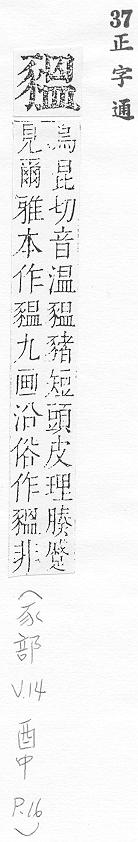 37正字通
豱
烏昆切音溫豱豬短頭皮理腠蹙
見爾雅本作豱九画沿俗作豱非
(豕部 V.14 酉中 P.16)